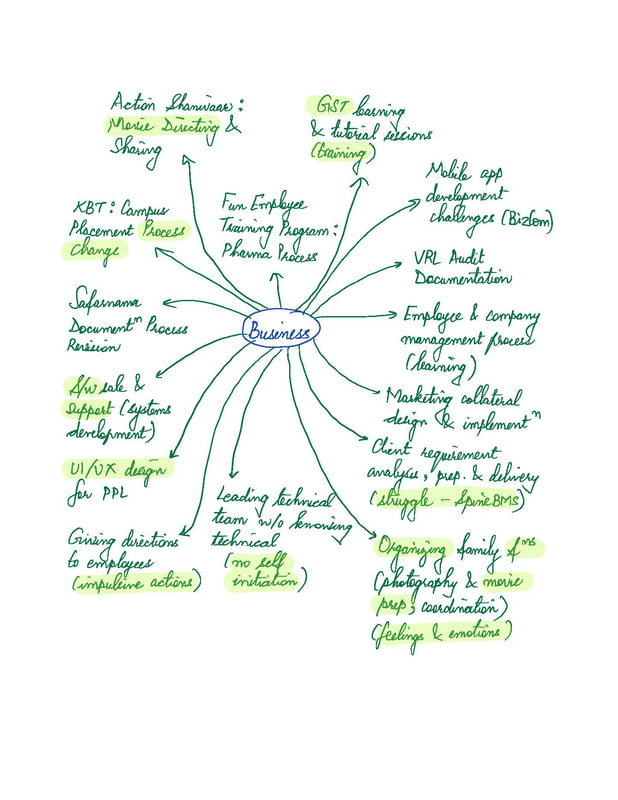 Action Shanivaar:
Movie Directing &
Sharing
GST learning
& tutorial sessions
(training)
Mobile app
development
challenges (Bizlom)
KBT: Campus
Placement Process
Change
Fun Employee
Training Program:
Pharma Process
VRL Audit
Documentation
Safarnama
Documentⁿ Process
Revision
Business
Employee & company
management process
(learning)
S/w sale &
support (systems
development)
Marketing collateral
design & implementⁿ
UI/UX design
for PPL
Client requirement
analysis, prep. & delivery
(struggle - SpineBMS)
Giving directions
to employees
(impulsive actions)
Leading technical
team w/o knowing
technical
(no self
initiation)
Organizing family fⁿˢ
(photography & movie
prep, coordination)
(feelings & emotions)